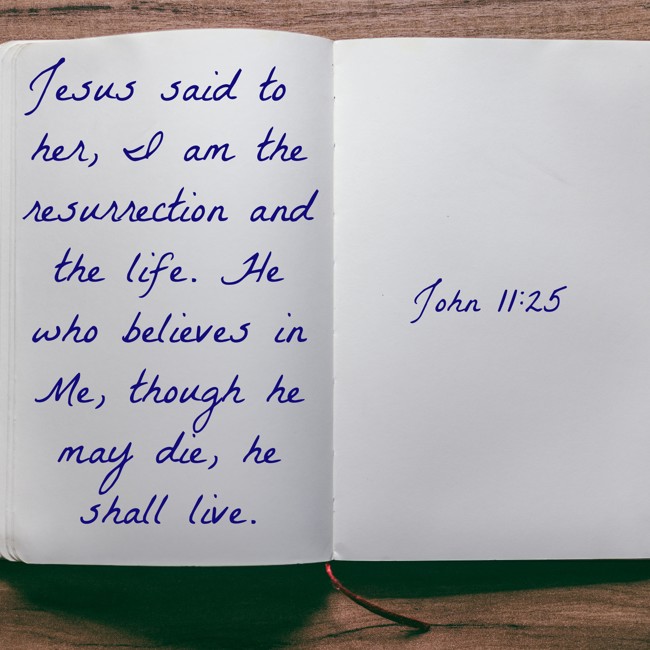 Jesus said to
her, I am the
resurrection and
the life. He
who believes in
Me, though he
may die, he
shall live.
John 11:25